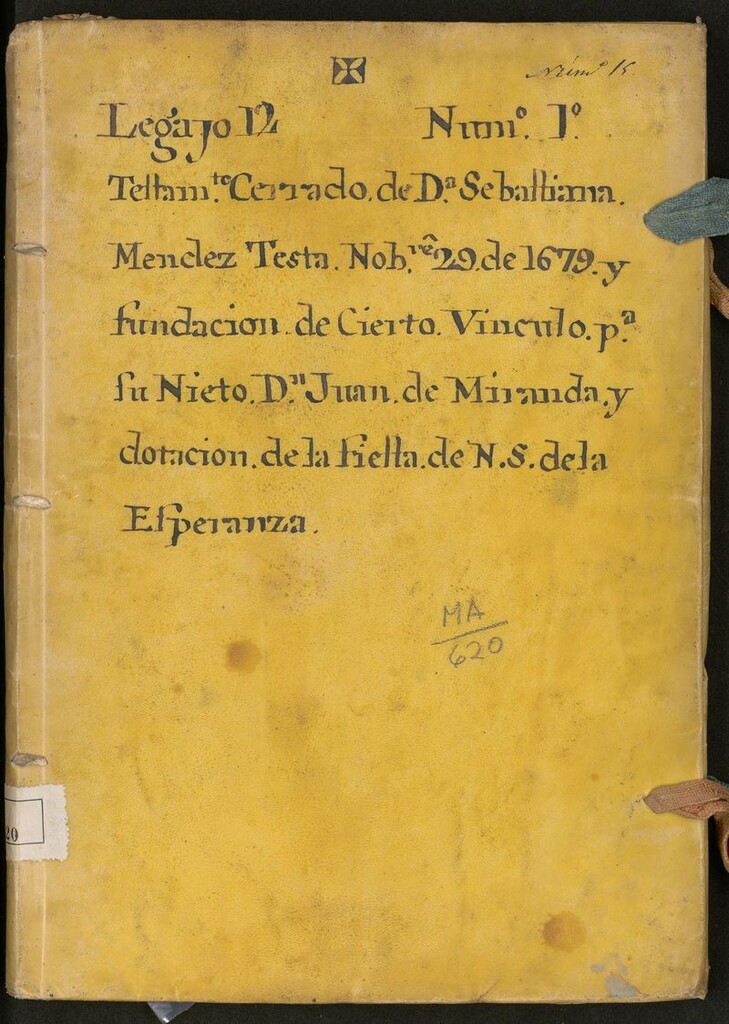 ✠
Num.º 1
Legajo 12 Num.º 1.º
Testam.to Cerrado. de D.ª Sebastiana.
Mendez Testa. Nob.re 29. de 1679. y
fundacion. de Cierto. Vinculo. p.ª
su Nieto. D.n Juan. de Miranda. y
dotacion. de la fiesta. de N.S. de la
Esperanza.
MA
620
20